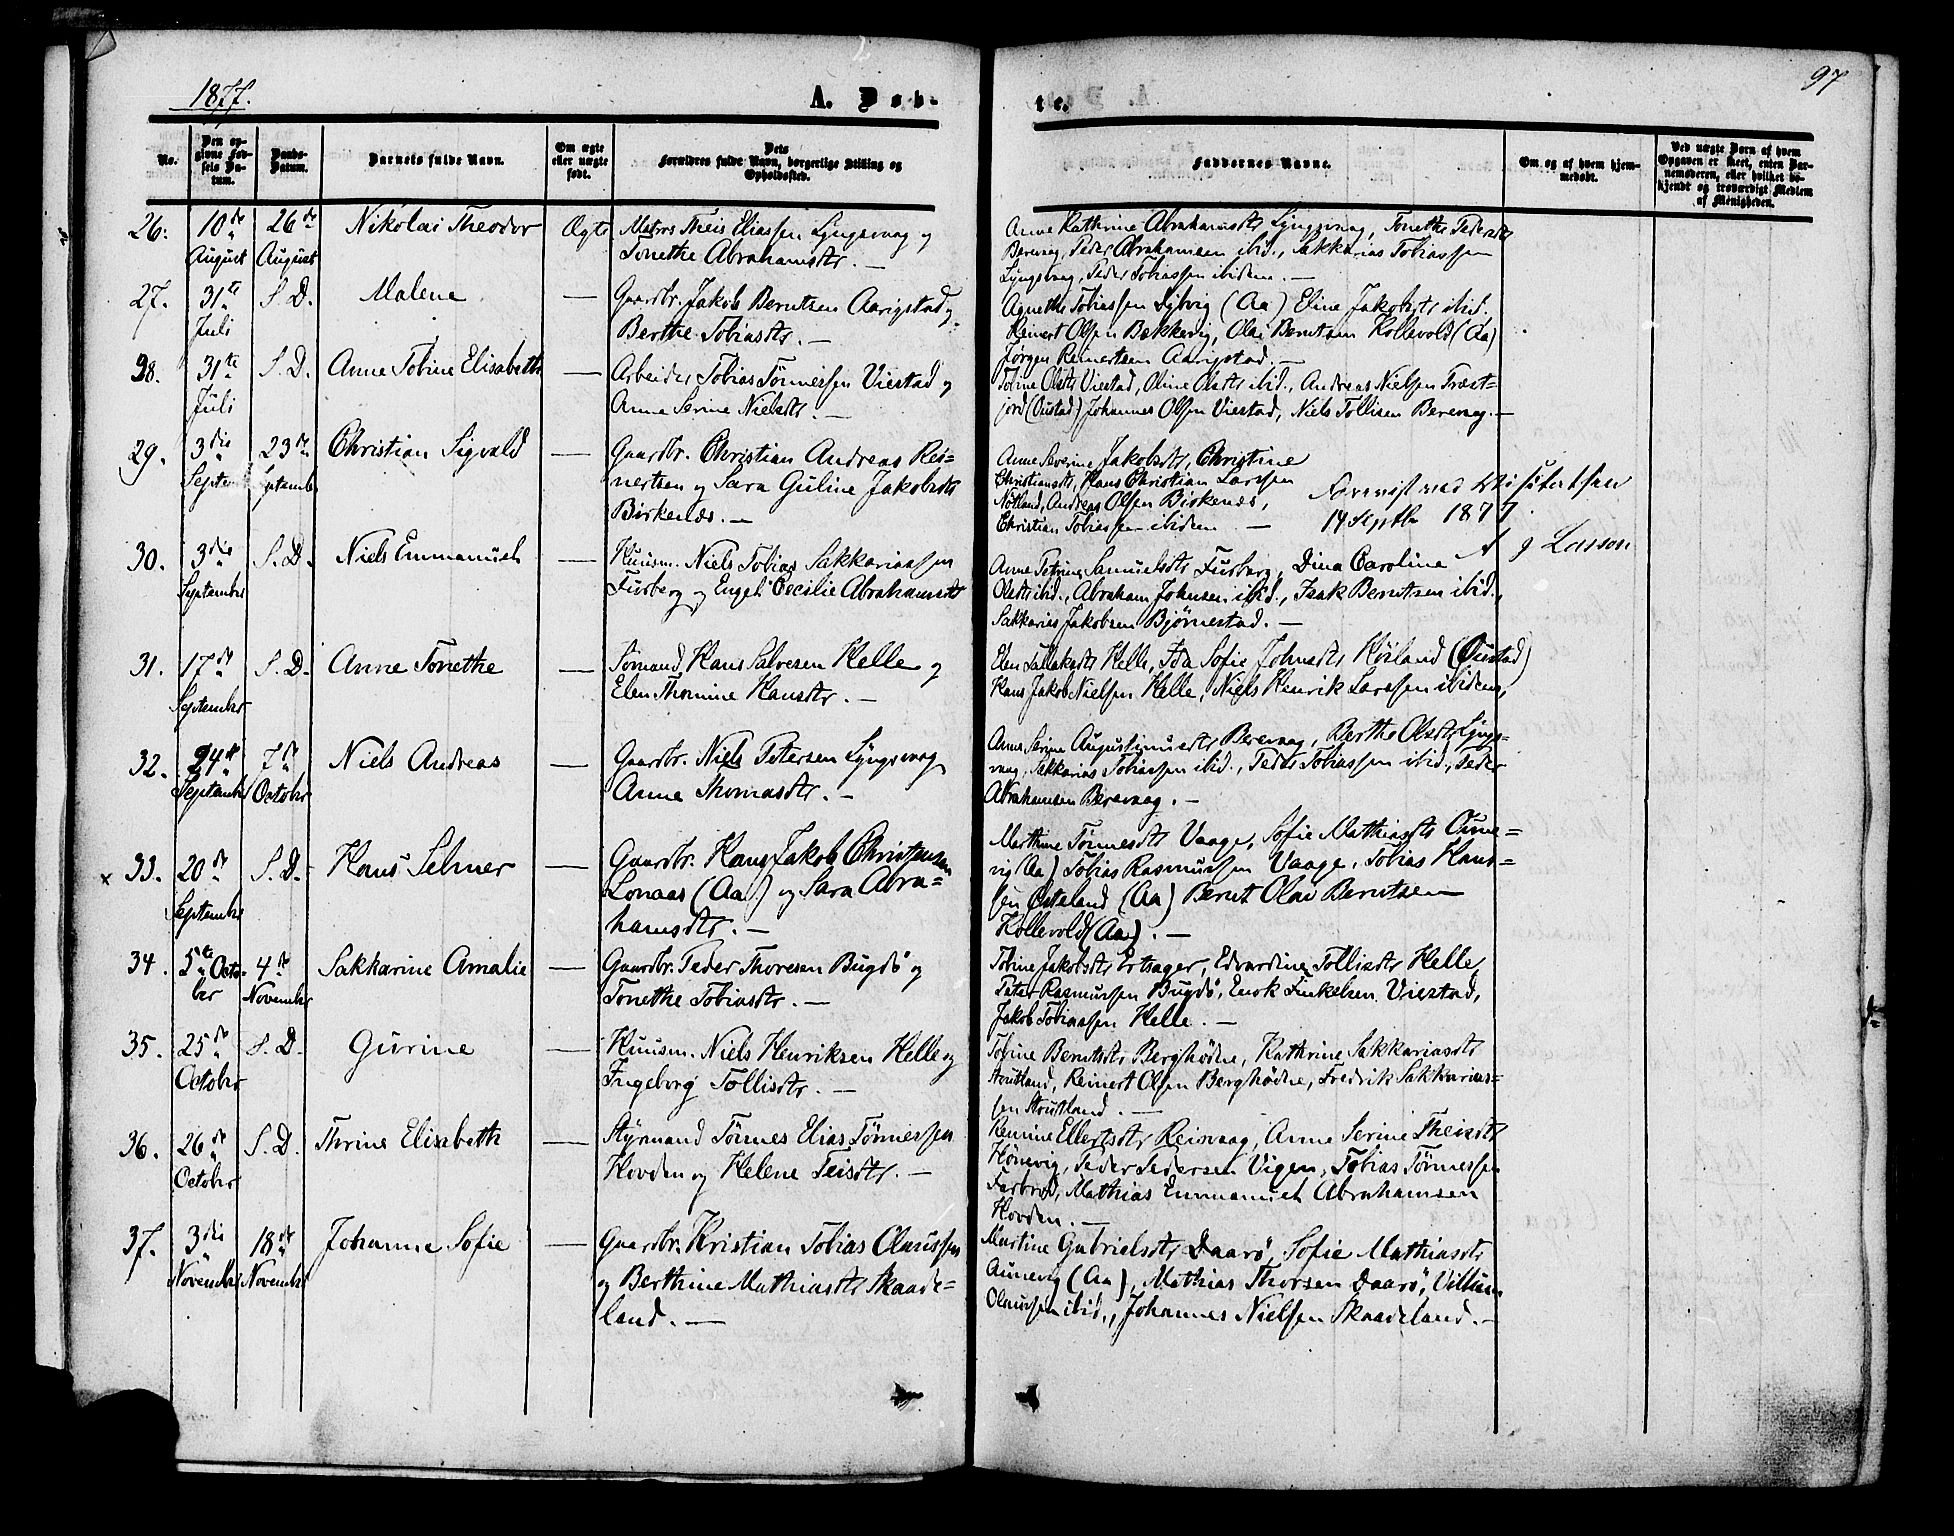 1877.
A. Døb-
te.
97
No.
Den op-
givne Fød-
sels Da-
tum.
Daabs-
Datum.
Barnets fulde Navn.
Om ægte
eller uægte
født.
Dets
Forældres fulde Navn, borgerlige Stilling og
Opholdssted.
Faddernes Navne.
Om og af hvem hjem-
medøbt.
Ved uægte Børn af hvem
Opgaven er skeet, enten Bar-
nemoderen, eller hvilket be-
kjendt og troværdigt Medlem
af Menigheden.
26. 10de August 26de August Nikolai Theodor Ægte
Matros Theis Eliassen Lyngsvaag og
Tonethe Abrahamsdtr. —
Anne Kathrine Abrahamsdtr Lyngsvaag, Tonethe Pedersdtr
Berevaag, Peder Abrahamsen ibid., Sakkarias Tobiassen
Lyngsvaag, Peder Tobiassen ibidem. —
27. 31te Juli S. D. Malene —
Gaardbr. Jakob Berntsen Aarigstad og
Berthe Tobiasdtr. —
Agnethe Tobiassen (Aa) Eline Jakobsdtr ibid.
Reinert Olsen Bekkevig, Olai Berntsen Kollevold (Aa)
Jørgen Reinertsen Aarigstad. —
28. 31te Juli S. D. Anne Tobine Elisabeth —
Arbeider Tobias Tønnessen Viestad og
Anne Serine Nielsdtr. —
Tobine Olsdtr Viestad, Oline Olsdtr ibid., Andreas Nielsen Træst-
jord (Øiestad) Johannes Olsen Viestad, Niels Tollisen Berevaag. —
29. 3die September 23de September Christian Sigvald —
Gaardbr. Christian Andreas Rei-
nertsen og Sara Guline Jakobsdtr
Birkenæs. —
Anne Severine Jakobsdtr, Christine
Christiansdtr, Hans Christian Larssen
Nøtland, Andreas Olsen Birkenæs,
Christian Tobiassen ibidem —
14 Septbr 1877.
A g Lasson
30. 3die September S. D. Niels Emmanuel —
Huusm. Niels Tobias Sakkariassen
Furberg og Engel Cecilie Abrahamsdtr
Anne Petrine Samuelsdtr Furberg, Dina Caroline
Olsdtr ibid., Abraham Johnsen ibid., Isak Berntsen ibid.,
Sakkarias Jakobsen Bjørnestad. —
31. 17de September S. D. Anne Tonethe —
Sømand Hans Salvesen Helle og
Elen Thomine Hansdtr. —
Elen Tallaksdtr Helle, Ida Sofie Johnsdtr Høiland (Øiestad)
Hans Jakob Nielsen Helle, Niels Henrik Larssen ibidem,
32. 24de September 7de October Niels Andreas —
Gaardbr. Niels Petersen Lyngsvaag
Anne Thomasdtr. —
Anne Serine Augustinusdtr Berevaag, Berthe Olsdtr Lyngs-
vaag, Sakkarias Tobiassen ibid., Peder Tobiassen ibid., Peder
Abrahamsen Berevaag. —
x 33. 20de September S. D. Hans Selmer —
Gaardbr. Hans Jakob Christensen
Lonaas (Aa) og Sara Abra-
hamsdtr. —
Marthine Tønnesdtr Vaage, Sofie Mathiasdtr Oune-
vig (Aa) Tobias Rasmussen Vaage, Tobias Hans-
sen Østeland (Aa) Bernt Olai Berntsen
Kollevold (Aa). —
34. 5te October 4de November Sakkarine Amalie —
Gaardbr. Peder Thoresen Bugdø og
Tonethe Tobiasdtr. —
Tobine Jakobsdtr Ertsager, Edvardine Tollisdtr Helle,
Peter Rasmussen Bugdø, Enok Finkelsen Viestad,
Jakob Tobiassen Helle. —
35. 25de October S. D. Gurine —
Huusm. Niels Henriksen Helle og
Ingeborg Tollisdtr. —
Tobine Berntsdtr Berghødne, Kathrine Sakkariasdtr
Stoutland, Reinert Olsen Berghødne, Fredrik Sakkarias-
sen Stoutland. —
36. 26de October S. D. Thrine Elisabeth —
Styrmand Tønnes Elias Tønnessen
Hovden og Helene Teisdtr. —
Remine Ellertsdtr Reinvaag, Anne Serine Theisdtr
Hønevig, Peder Pedersen Vigen, Tobias Tønnessen
Farbrod, Mathias Emmanuel Abrahamsen
Hovden. —
37. 3die November 18de November Johanne Sofie —
Gaardbr. Kristian Tobias Olaussen
og Berthine Mathiasdtr Skaade-
land. —
Martine Gabrielsdtr Daarø, Sofie Mathiasdtr
Aunevig (Aa), Mathias Thorsen Daarø, Villum
Olaussen ibid., Johannes Nielsen Skaadeland. —